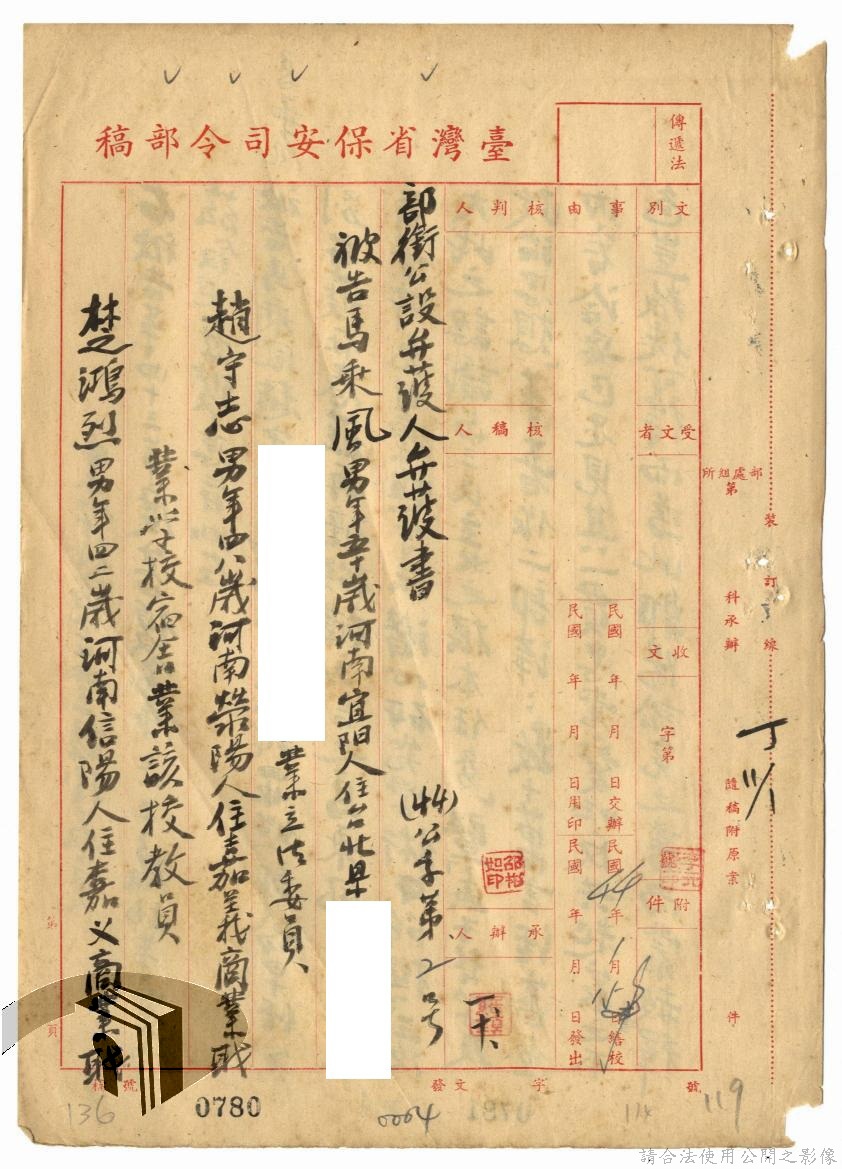 臺灣省保安司令部稿
傳遞法
文別
事由
核判人
受文者
核稿人
收文
字第
附件
民國 年 月 日交辦
民國 44年 1月 日繕校
民國 年 月 日用印
民國 年 月 日發出
承辦人
部處組所
第
科承辦
隨稿附原案
件
裝訂線
部銜公設弁護人弁護書
(44)公字第2号
被告馬乘風男年五十歲河南宜阳人住台北县
業立法委員
趙守志男年四八歲河南滎陽人住嘉義商業職
業学校宿舍業該校教員
楚鴻烈男年四二歲河南信陽人住嘉义商業職
第
頁
檔號
發文
字
號
136
0780
0004
114
119
請合法使用公開之影像